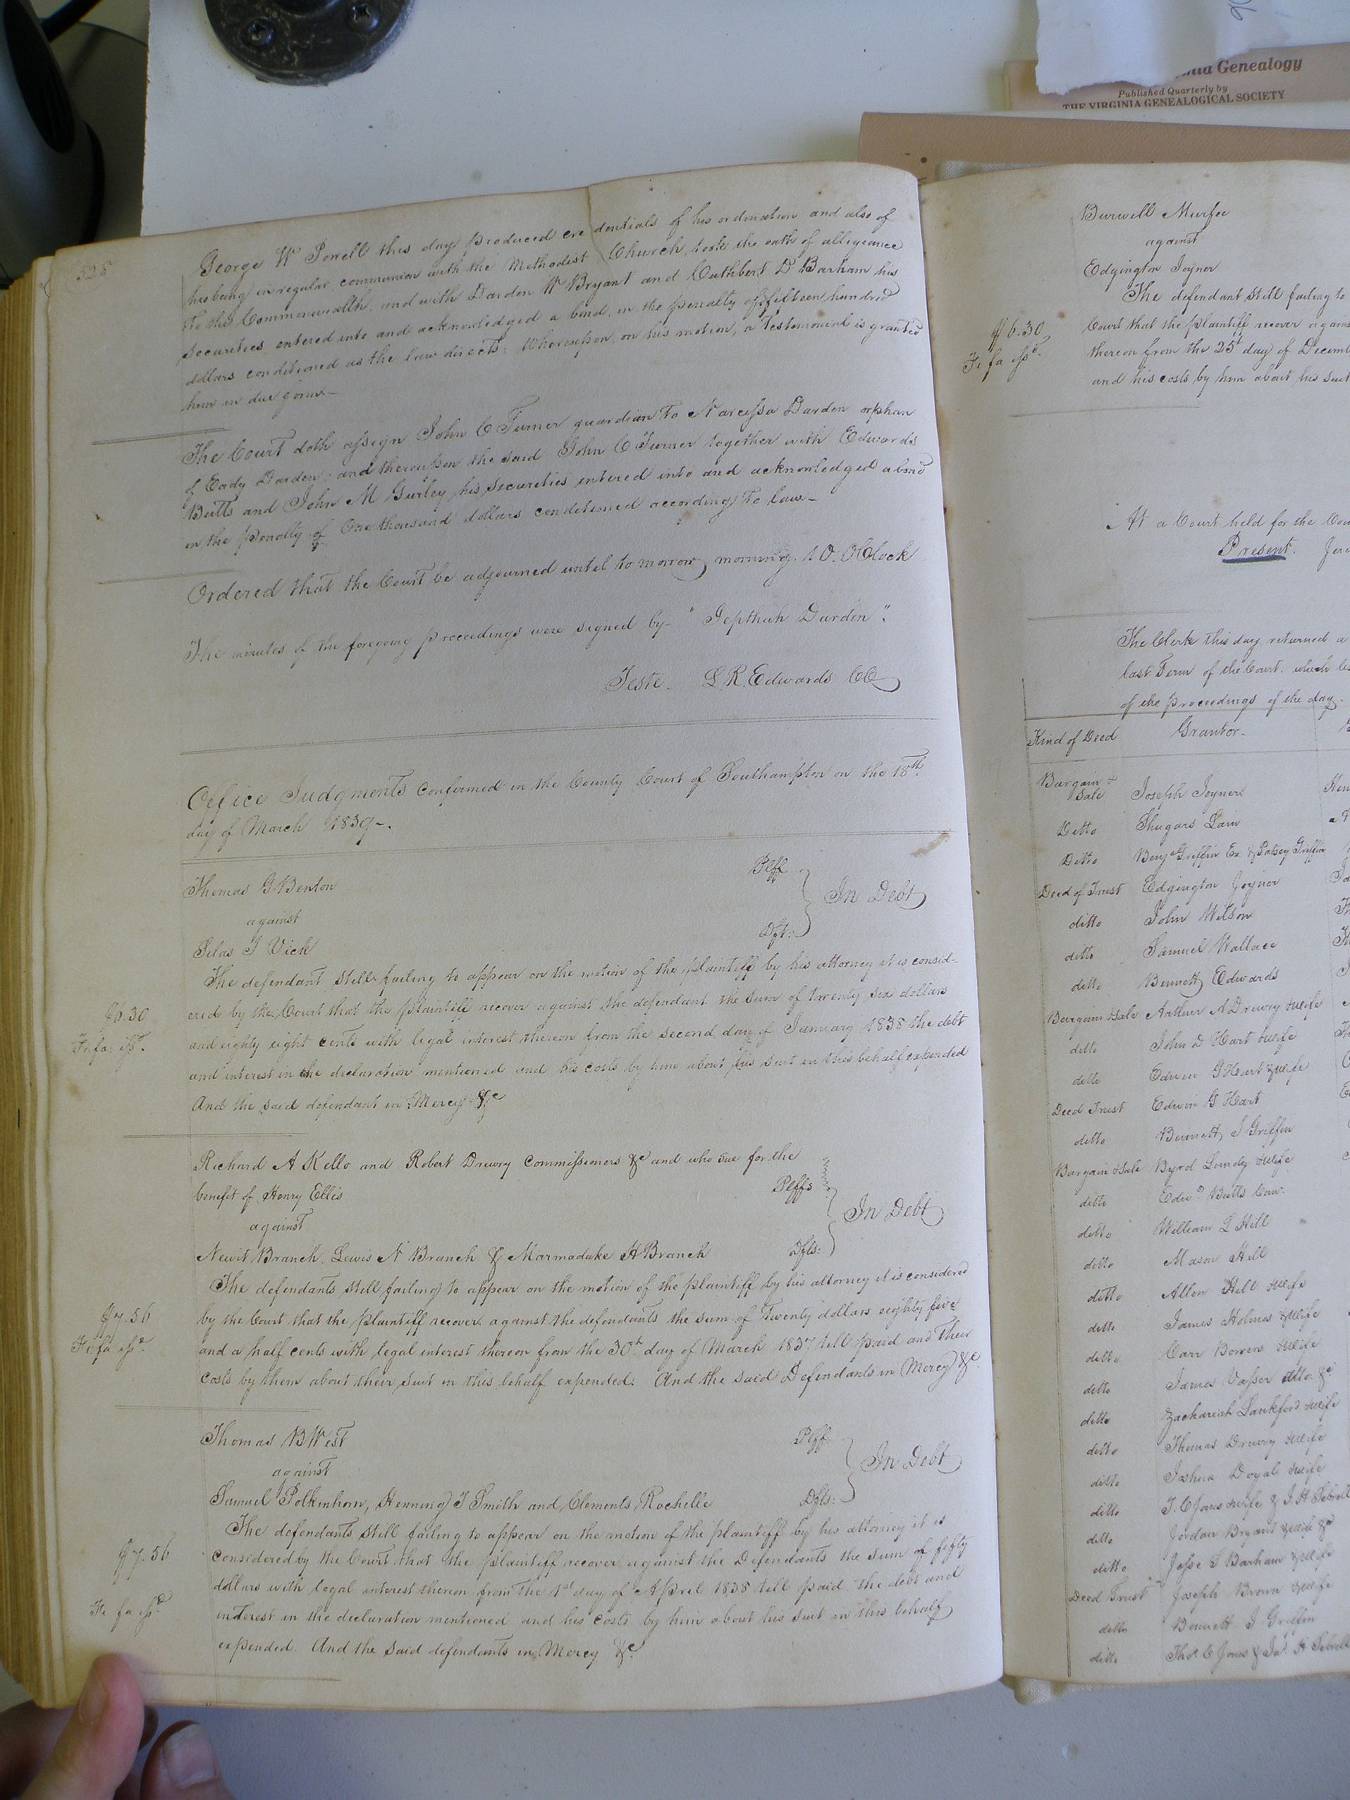 nia Genealogy
Published Quarterly by
THE VIRGINIA GENEALOGICAL SOCIETY
528
George W Powell this day produced credentials of his ordination and also of
his being in regular communion with the Methodist Church, took the oath of allegiance
to this Commonwealth, and with Darden W Bryant and Cuthbert D Barham his
securities entered into and acknowledged a bond, in the penalty of fifteen hundred
dollars conditioned as the law directs; Whereupon, on his motion, a testimonial is granted
him in due form—
The Court doth assign John C Turner guardian to Narcissa Darden orphan
of Eady Darden; and thereupon the said John C Turner together with Edwards
Butts and John M Gurley, his securities entered into and acknowledged a bond
in the penalty of One thousand dollars conditioned according to law—
Ordered that the Court be adjourned until to morrow morning 10. OClock
The minutes of the foregoing proceedings were signed by— "Jepthah Darden".
Teste. L R. Edwards CC
Office Judgments confirmed in the County Court of Southampton on the 18th
day of March 1839—.
Thomas G Benton Plff
against In Debt
Silas G Vick Dft:
The defendant still failing to appear on the motion of the plaintiff by his attorney it is consid-
ered by the Court that the plaintiff recover against the defendant the sum of twenty six dollars
$6.30
and eighty eight cents with legal interest thereon from the second day of January 1838 the debt
Fi fa: isst.
and interest in the declaration mentioned and his costs by him about his suit in this behalf expended
And the said defendant in Mercy &c
Richard A Kello and Robert Drewry Commissioners &c and who sue for the
benefit of Henry Ellis Plffs
against In Debt
Newit Branch, Lewis N Branch & Marmaduke H Branch Dfts:
The defendants still failing to appear on the motion of the plaintiff by his attorney it is considered
$7.56
by the Court that the plaintiff recover against the defendants the sum of Twenty dollars eighty five
Fi fa isst.
and a half cents with legal interest thereon from the 30th day of March 1837 till paid and their
costs by them about their suit in this behalf expended. And the said Defendants in Mercy &c.
Thomas B West Plff
against In Debt
Samuel Polkinhorn, Henning T Smith and Clements Rochelle Dfts:
The defendants still failing to appear on the motion of the plaintiff by his attorney it is
$7.56
considered by the Court that the plaintiff recover against the Defendants the sum of fifty
dollars with legal interest thereon from the 1st day of April 1838 till paid the debt and
Fi fa isst.
interest in the declaration mentioned and his costs by him about his suit in this behalf
expended. And the said defendants in Mercy &c.
Burwell Murfee
against
Edgington Joyner
The defendant still failing to
$6.30
Court that the plaintiff recover agains
Fi fa isst.
thereon from the 25th day of Decemb
and his costs by him about his suit
At a Court held for the Cou
Present.
The Clerk this day returned a
last Term of the Court which
of the proceedings of the day.
Kind of Deed Grantor—
Bargain & Sale Joseph Joyner
Ditto Shugars Lain
Ditto Benj Griffin Ex & Patsey Griffin
Deed of Trust Edgington Joyner
ditto John Wilson
ditto Samuel Wallace
ditto Bennett Edwards
Bargain & Sale Arthur A Drewry & wife
ditto John D Hart & wife
ditto Edwin G Hart & wife
Deed Trust Edwin G Hart
ditto Bennett J Griffin
Bargain & Sale Byrd Lundy & wife
ditto Edwd Butts
ditto William L Hill
ditto Mason Hill
ditto Allen Hill & wife
ditto James Holmes & wife
ditto Carr Bowers & wife
ditto James Vasser atto. &c
ditto Zachariah Lankford & wife
ditto Thomas Drewry & wife
ditto Joshua Doyal & wife
ditto T. C Jones & wife & J. H
ditto Jordan Bryant & wife &c
ditto Jesse S Barham & wife
Deed Trust Joseph Brown & wife
ditto Bennett J Griffin
ditto Thos C Jones & Jas H